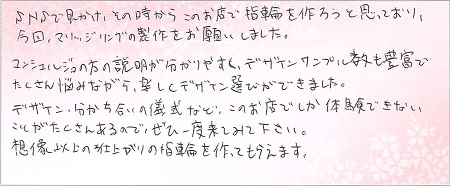 SNSで見かけ、その時からこのお店で指輪を作ろうと思っており、
今回、マリッジリングの製作をお願いしました。
コンシェルジュの方の説明が分かりやすく、デザインサンプル数も豊富で
たくさん悩みながら、楽しくデザイン選びができました。
デザイン・分かち合いの儀式など、このお店でしか体験できない
ことがたくさんあるので、ぜひ一度来てみて下さい。
想像以上の仕上がりの指輪を作ってもらえます。